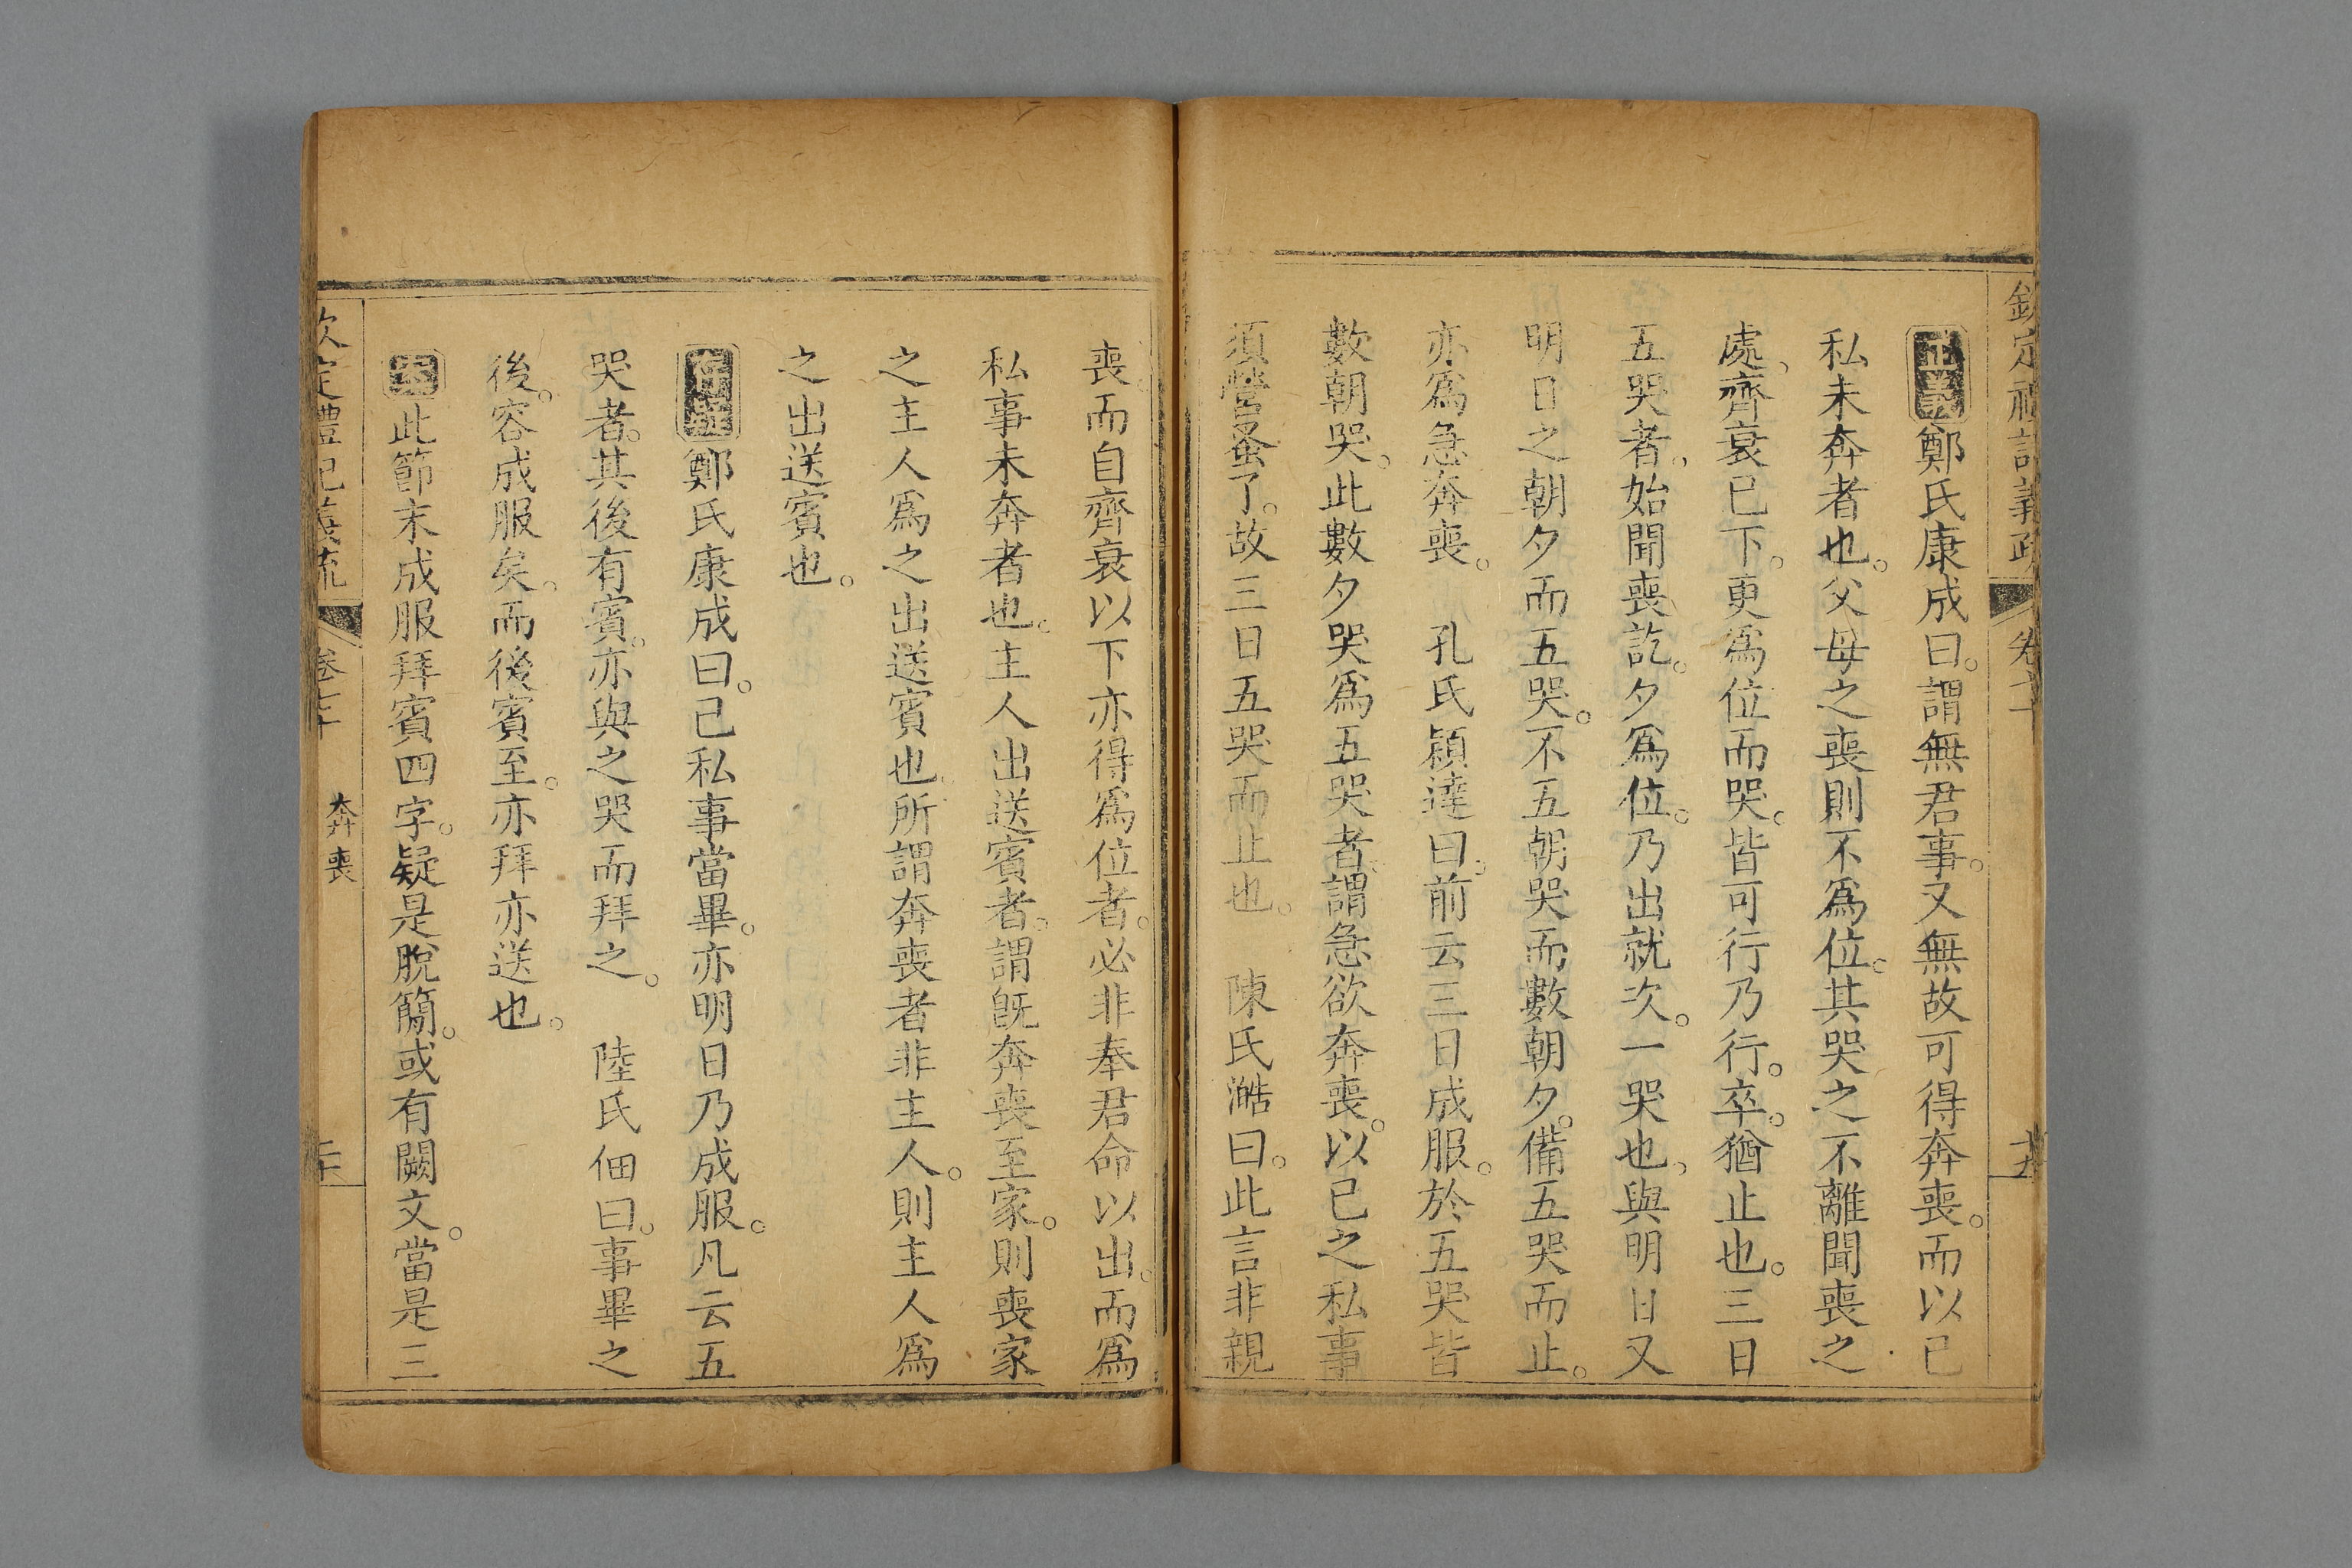 欽定禮記義疏 卷七十
正義鄭氏康成曰。謂無君事。又無故可得奔喪。而以己
私未奔者也。父母之喪則不爲位。其哭之不離聞喪之
處、齊衰已下。更爲位而哭。皆可行乃行。卒。猶止也。三日
五哭者。始聞喪訖。夕爲位。乃出就次。一哭也。與明日又
明日之朝夕而五哭。不五朝哭而數朝夕。備五哭而止。
亦爲急奔喪。　孔氏穎達曰。前云三日成服。於五哭皆
數朝哭。此數夕哭爲五哭者。謂急欲奔喪。以已之私事
須營蚤了。故三日五哭而止也。　陳氏澔曰。此言非親
喪。而自齊衰以下亦得爲位者。必非奉君命以出。而爲
私事未奔者也。主人出送賓者。謂旣奔喪至家。則喪家
之主人爲之出送賓也。所謂奔喪者非主人。則主人爲
之出送賓也。
存疑鄭氏康成曰。己私事當畢。亦明日乃成服。凡云五
哭者。其後有賓。亦與之哭而拜之。　陸氏佃曰。事畢之
後。容成服矣。而後賓至。亦拜亦送也。
案此節末成服拜賓四字。疑是脫簡。或有闕文。當是三
欽定禮記義疏 卷七十 奔喪